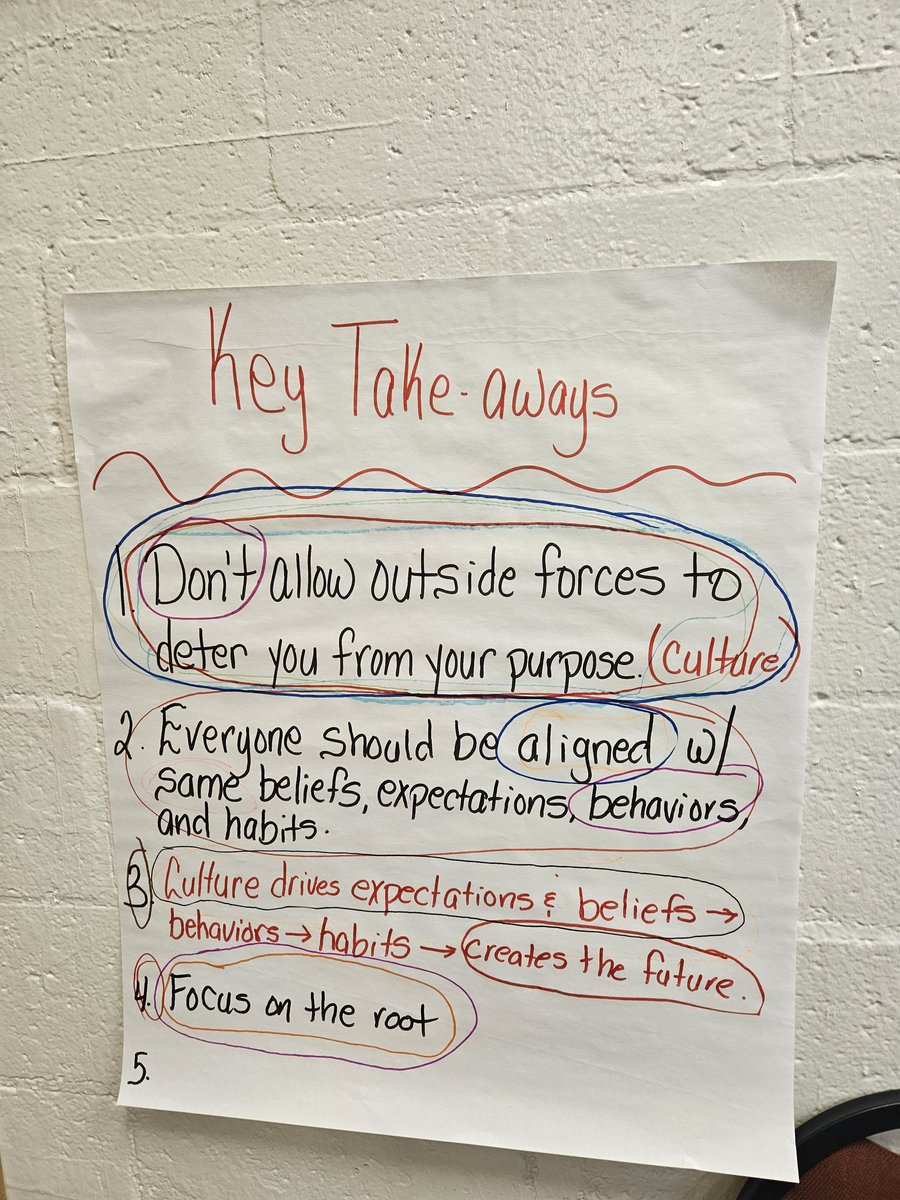 Key Take-aways
1. Don't allow outside forces to
deter you from your purpose. (Culture)
2. Everyone should be aligned w/
same beliefs, expectations, behaviors,
and habits.
3. Culture drives expectations & beliefs →
behaviors → habits → Creates the future.
4. Focus on the root
5.